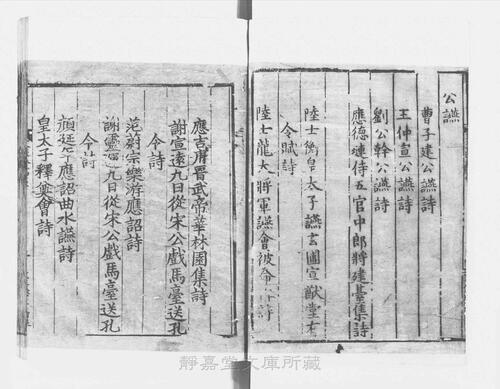 公讌
曹子建公讌詩
王仲宣公讌詩
劉公幹公讌詩
應德璉侍五官中郎將建臺集詩
陸士衡皇太子讌玄圃宣猷堂有
令賦詩
陸士龍大將軍讌會被命作詩
應吉甫晋武帝華林園集詩
謝宣遠九日從宋公戲馬臺送孔
令詩
范蔚宗樂游應詔詩
謝靈運九日從宋公戲馬臺送孔
令詩
顔延年應詔曲水讌詩
皇太子釋奠會詩
靜嘉堂文庫所藏